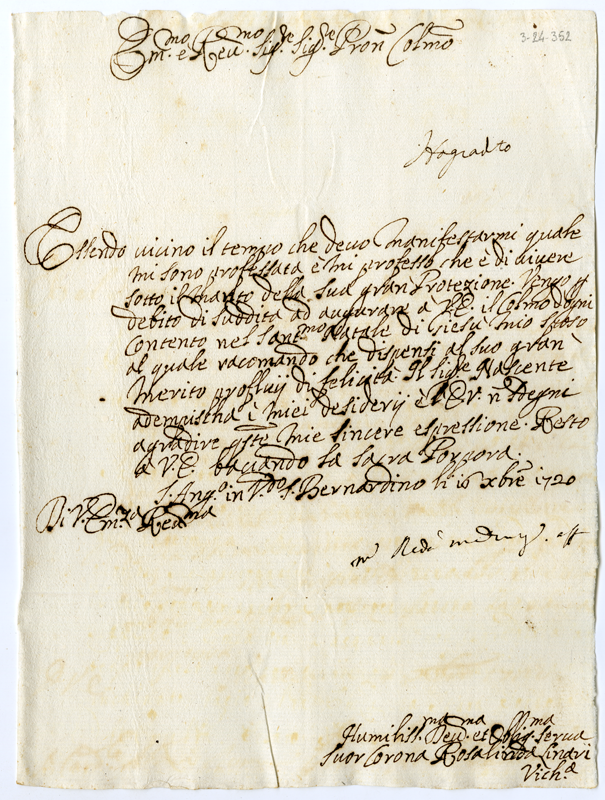 3-24-352
Em.mo e Reu.mo Sig.re Sig.re Pron Colmo
Essendo vicino il tempo che deuo Manifestarmi quale
mi sono professata è mi professo, che è di uiuere
sotto il Manto della sua gran Protezione. Vengo p
debito di suddita ad augurare a V.E. il Colmo d'ogni
Contento nel Sant.mo Natale di Giesù mio Sposo
al quale racomando che dispensi al suo gran
Merito profluij di felicità. Il Sig.re Nascente
adempischa i miei desiderij è l'E.V. n sdegni
agradire qste mie sincere espressione. Resto
a V.E. bacciando la Sacra Porpora.
S. Ang.o in V.do S. Bernardino li 16 Xbre 1720
Di V. Em.za Reu.ma
Humiliss.ma Deu.ma et Obblig.ma Serua
Suor Corona Rosalinda
Vich.a